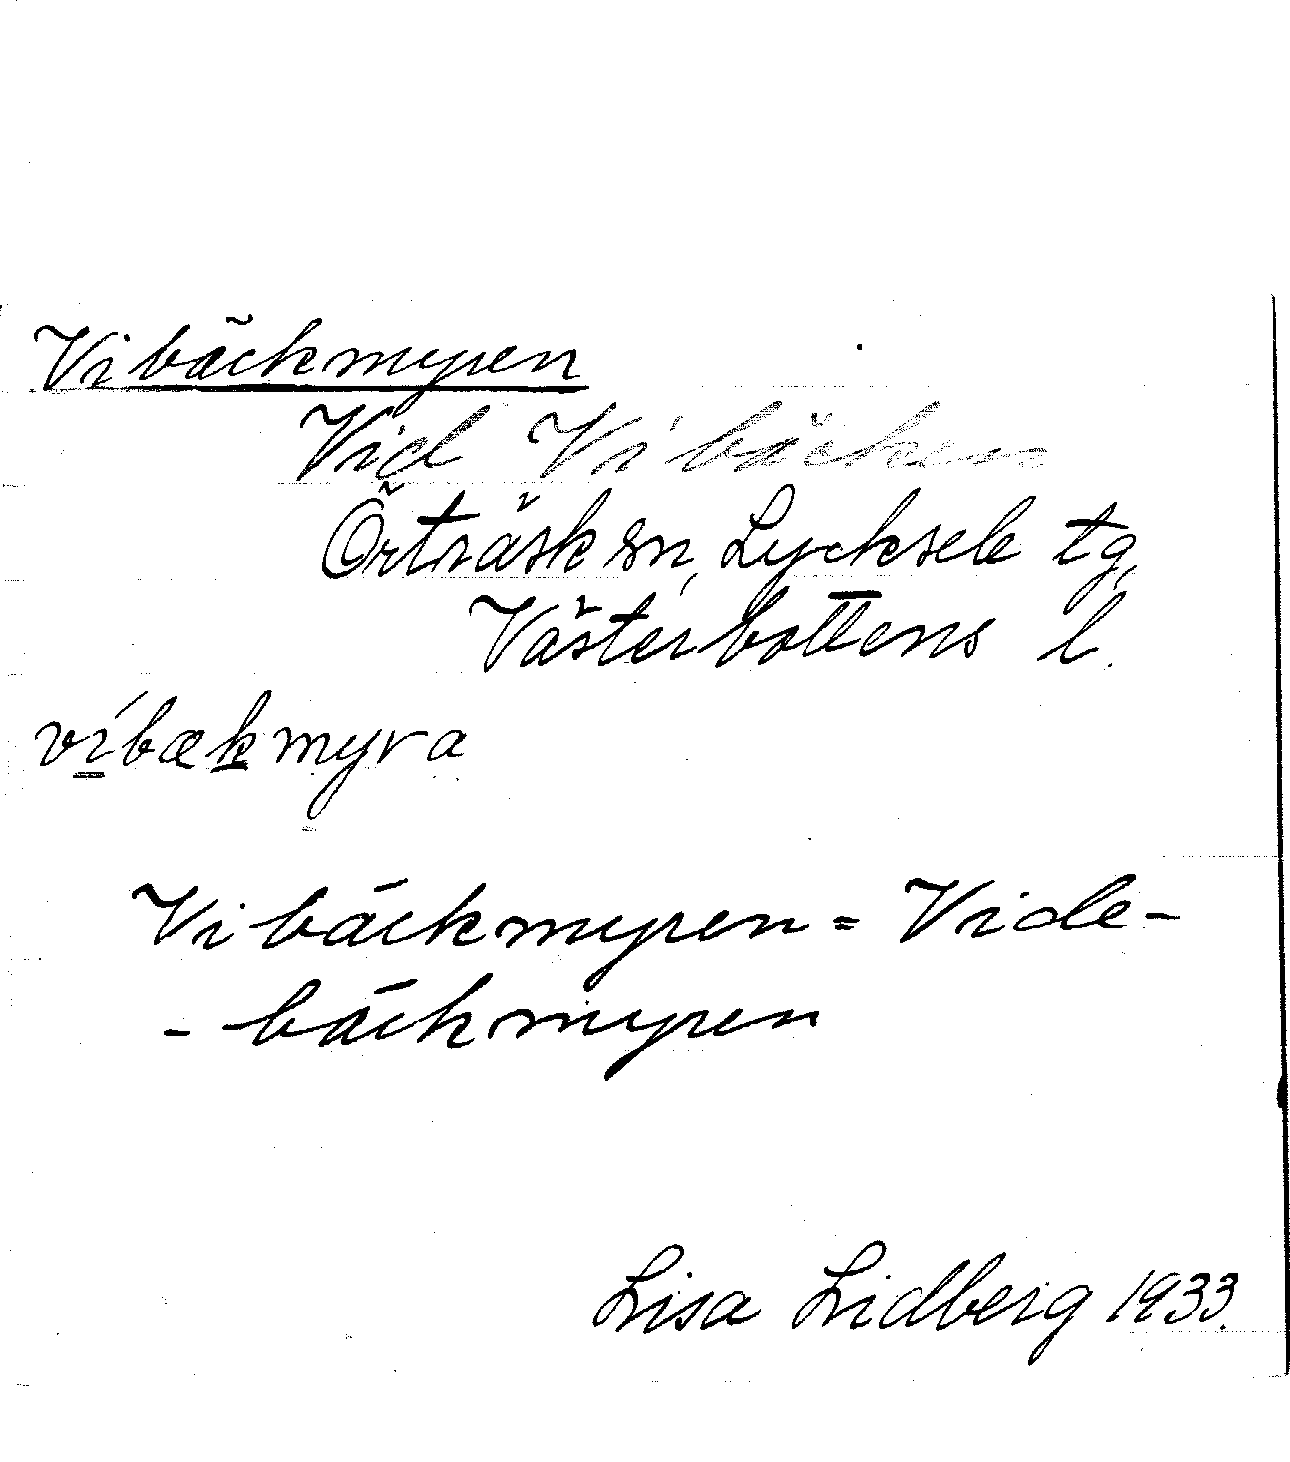 Vibäckmyren
Vid Vibäcken
Örträsk sn, Lycksele tg,
Västerbottens l.
víbækmyra
Vibäckmyren = Vide-
- bäckmyren
Lisa Lidberg 1933.